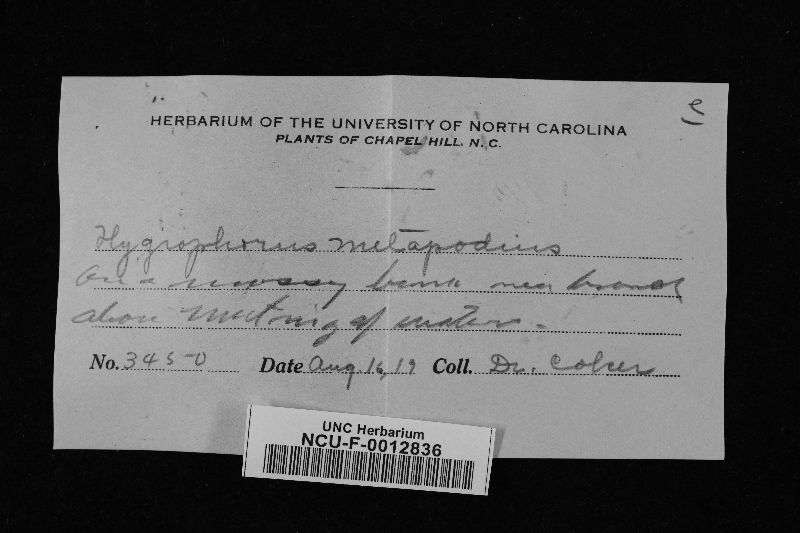 HERBARIUM OF THE UNIVERSITY OF NORTH CAROLINA
PLANTS OF CHAPEL HILL, N. C.
Hygrophorus metapodius
On a mossy bank near branch
above Meeting of waters.
No. 3450 Date Aug. 16, 19 Coll. Dr. Coker
UNC Herbarium
NCU-F-0012836